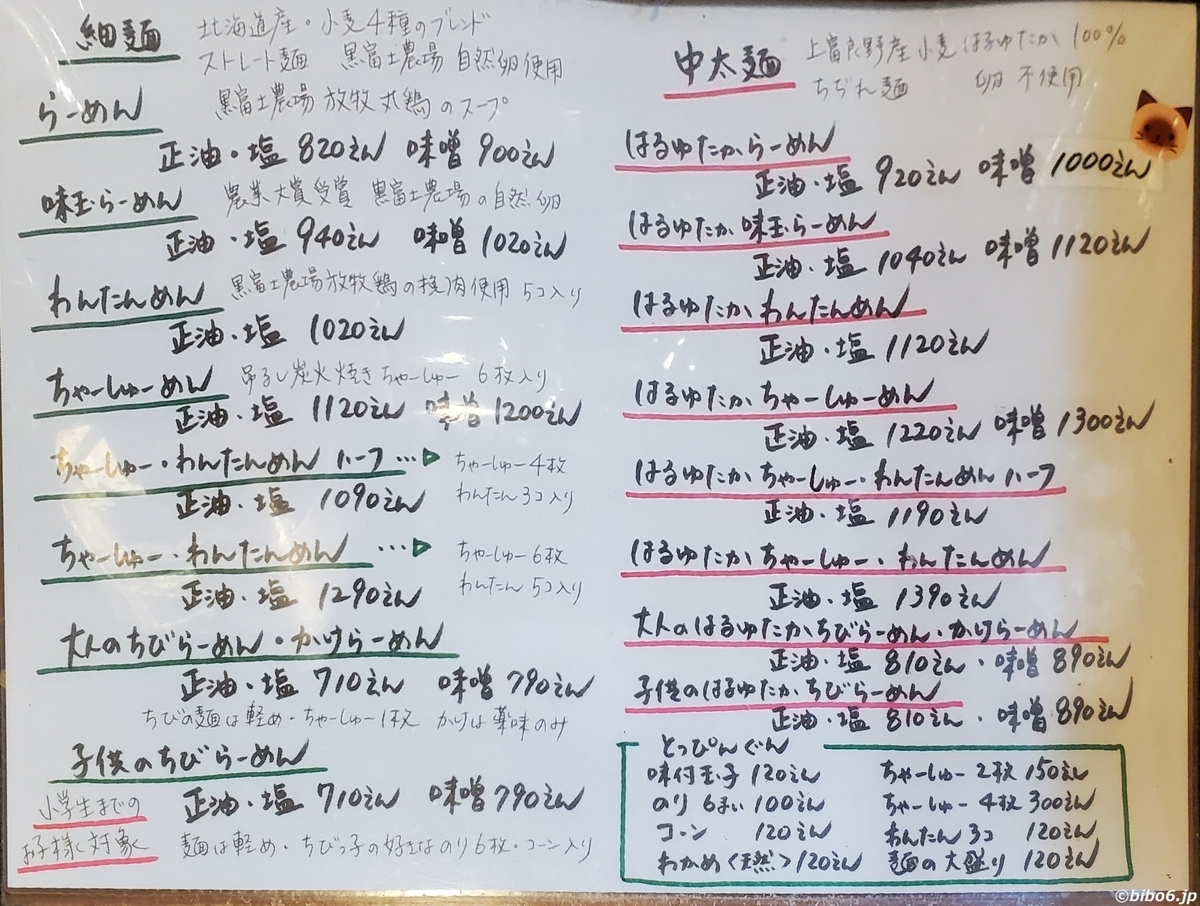 細麺
北海道産・小麦4種のブレンド
ストレート麺 黒富士農場 自然卵使用
らーめん
黒富士農場 放牧丸鶏のスープ
正油・塩 820えん 味噌 900えん
味玉らーめん
農業大賞受賞 黒富士農場の自然卵
正油・塩 940えん 味噌 1020えん
わんたんめん
黒富士農場放牧鶏の挽肉使用 5コ入り
正油・塩 1020えん
ちゃーしゅーめん
吊るし炭火焼きちゃーしゅー 6枚入り
正油・塩 1120えん 味噌 1200えん
ちゃーしゅー・わんたんめん ハーフ …▷
ちゃーしゅー4枚
わんたん3コ入り
正油・塩 1090えん
ちゃーしゅー・わんたんめん …▷
ちゃーしゅー6枚
わんたん 5コ入り
正油・塩 1290えん
大人のちびらーめん・かけらーめん
正油・塩 710えん 味噌 790えん
ちびの麺は軽め・ちゃーしゅー1枚 かけは薬味のみ
子供のちびらーめん
小学生までの
お子様く対象く
正油・塩 710えん 味噌 790えん
麺は軽め・ちびっ子の好きなのり6枚・コーン入り
中太麺
上富良野産小麦はるゆたか 100%
ちぢれ麺 卵 不使用
はるゆたからーめん
正油・塩 920えん 味噌 1000えん
はるゆたか味玉らーめん
正油・塩 1040えん 味噌 1120えん
はるゆたかわんたんめん
正油・塩 1120えん
はるゆたかちゃーしゅーめん
正油・塩 1220えん 味噌 1300えん
はるゆたかちゃーしゅー・わんたんめんハーフ
正油・塩 1190えん
はるゆたかちゃーしゅー・わんたんめん
正油・塩 1390えん
大人のはるゆたかちびらーめん・かけらーめん
正油・塩 810えん・味噌 890えん
子供のはるゆたかちびらーめん
正油・塩 810えん・味噌 890えん
とっぴんぐん
味付玉子 120えん ちゃーしゅー 2枚 150えん
のり 6まい 100えん ちゃーしゅー 4枚 300えん
コーン 120えん わんたん 3コ 120えん
わかめ<天然>120えん 麺の大盛り 120えん
©bibo6.jp